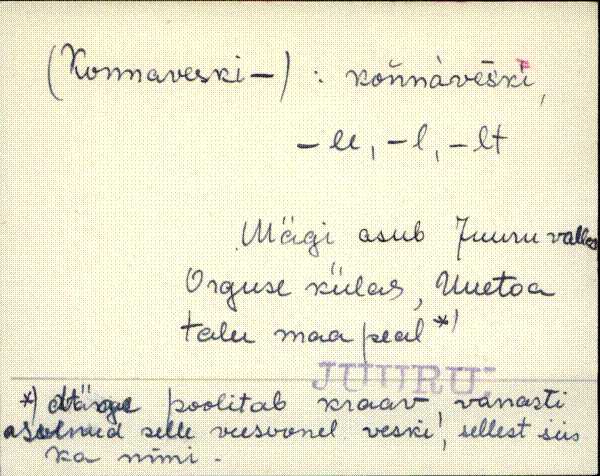 (Konnaveski-) : koňnàvèški,
-le, -l, -lt
Mägi asub Juuru vallas
Orguse külas, Uuetoa
talu maa peal *)
JUURU.
*) Mäge poolitab kraav, vanasti
asunud selle veesoonel veski, sellest siis
ka nimi.